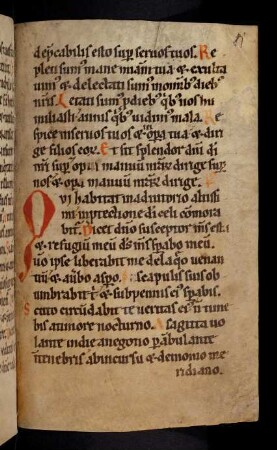 depcabilis esto sup seruos tuos. Re
pleti sumꝰ mane miam tua & exulta
uimꝰ & delectati sumꝰ in omnibꝰ dieb.
nris. Letati sumꝰ p dieb. qbꝰ nos hu
miliasti annis qbꝰ uidimꝰ mala. Re
spice in seruos tuos & in opa tua & diri
ge filios eoꝝ. Et sit splendor dni di
nri sup nos & opa manuū nrarꝰ dirige sup
nos & opa manuū nrarꝰ dirige.
Qui habitat in adiutorio altissi
mi in ptectione di celi cōmora
bit. Dicet dno susceptor ms es tu.
& refugiū meū ds ms spabo in eū.
Quo ipse liberabit me de laqo uenan
tiū & a ubo aspo. Scapulis suis ob
umbrabit t & sub pennis eiꝰ spabis.
Scuto circūdabit te ueritas eiꝰ n time
bis a timore nocturno. A sagitta uo
lante in die a negotio pābulante
in tenebris ab incursu & demonio me
ridiano.